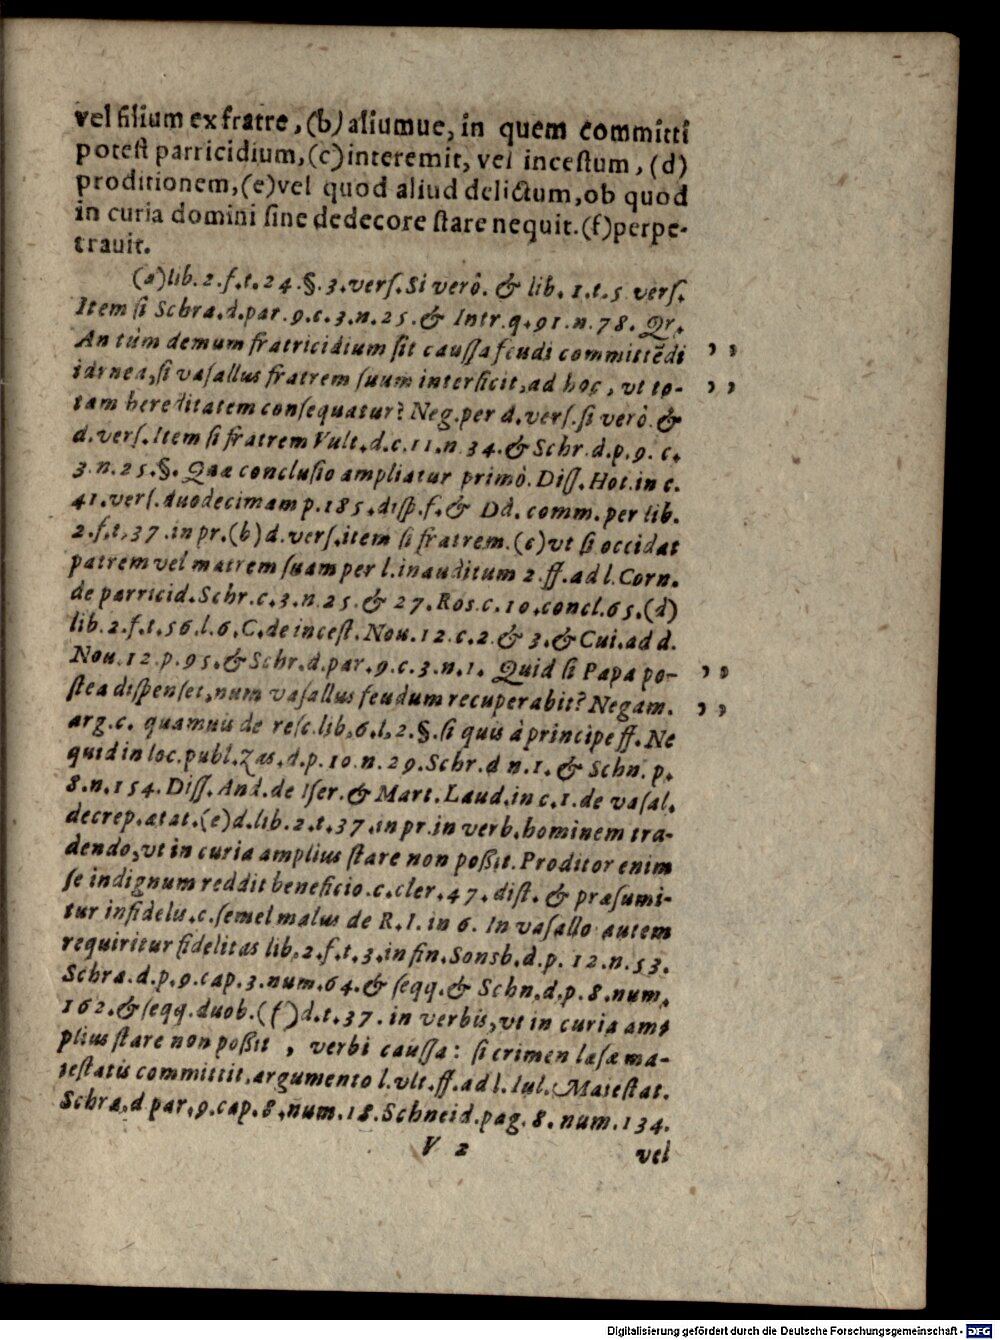 vel filium ex fratre, (b) aliumue, in quem committi
potest parricidium, (c) interemit, vel incestum, (d)
proditionem, (e) vel quod aliud delictum, ob quod
in curia domini sine dedecore stare nequit. (f) perpe-
trauit.
(a) lib. 2. f. t. 24. §. 3. vers. Si verò. & lib. 1. t. 5 vers.
Item si Schra. d. par. 9. c. 3. n. 25. & Intr. q. 91. n. 78. Qr.
An tùm demum fratricidium sit caussa feudi committẽdi ’ ’
idonea, si vasallus fratrem suum interficit, ad hoc, vt to- ’ ’
tam hereditatem consequatur? Neg. per d. vers. si verò. &
d. vers. Item si fratrem Vult. d. c. 11. n. 34. & Schr. d. p. 9. c.
3. n. 25. §. Quæ conclusio ampliatur primò. Diss. Hot. in c.
41. vers. duodecimam p. 185. disp. f. & Dd. comm. per lib.
2. f. t. 37. in pr. (b) d. vers. item si fratrem. (c) vt si occidat
patrem vel matrem suam per l. inauditum 2. ff. ad l. Corn.
de parricid. Schr. c. 3. n. 25. & 27. Ros. c. 10. concl. 65. (d)
lib. 2. f. t. 56. l. 6. C. de incest. Nou. 12. c. 2. & 3. & Cui. ad d.
Nou. 12. p. 95. & Schr. d. par. 9. c. 3. n. 1. Quid si Papa po- ’ ’
stea dispenset, num vasallus feudum recuperabit? Negam. ’ ’
arg. c. quamuis de resc. lib. 6. l. 2. §. si quis à principe ff. Ne
quid in loc. publ. Zas. d. p. 10. n. 29. Schr. d n. 1. & Schn. p.
8. n. 154. Diss. And. de Iser. & Mart. Laud. in c. 1. de vasal.
decrep. ætat. (e) d. lib. 2. t. 37. in pr. in verb. hominem tra-
dendo, vt in curia amplius stare non poßit. Proditor enim
se indignum reddit beneficio. c. cler. 47. dist. & præsumi-
tur infidelis. c. semel malus de R. I. in 6. In vasallo autem
requiritur fidelitas lib. 2. f. t. 3. in fin. Sonsb. d. p. 12. n. 53.
Schra. d. p. 9. cap. 3. num. 64. & seqq. & Schn. d. p. 8. num.
162. & seqq. duob. (f) d. t. 37. in verbis, vt in curia am-
plius stare non poßit, verbi caussa: si crimen læsæ ma-
iestatis committit, argumento l. vlt. ff. ad l. Iul. Maiestat.
Schra. d par. 9. cap. 8. num. 18. Schneid. pag. 8. num. 134.
V 2 vel
Digitalisierung gefördert durch die Deutsche Forschungsgemeinschaft - DFG